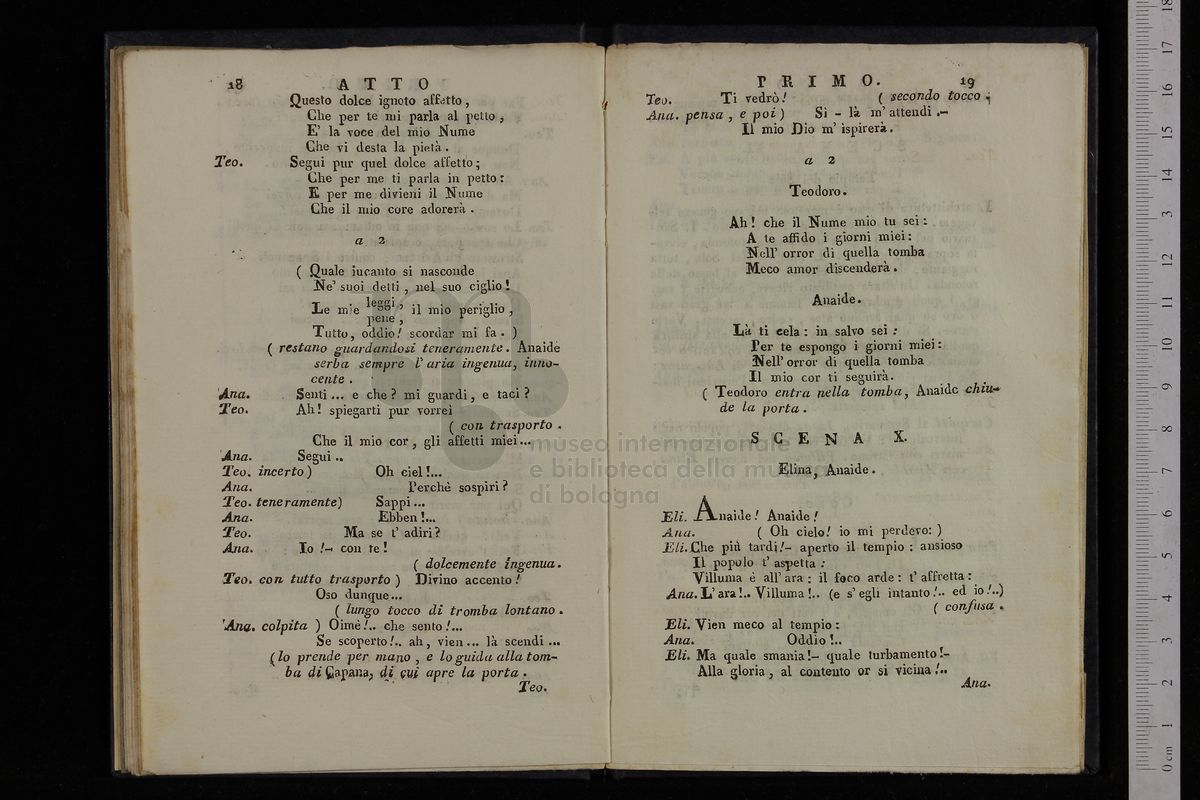 18 ATTO
Questo dolce ignoto affetto,
Che per te mi parla al petto,
E' la voce del mio Nume
Che vi desta la pietà.
Teo. Segui pur quel dolce affetto;
Che per me ti parla in petto:
E per me divieni il Nume
Che il mio core adorerà.
a 2
( Quale incanto si nasconde
Ne' suoi detti, nel suo ciglio!
Le mie leggi, il mio periglio,
pene,
Tutto, oddio! scordar mi fa. )
( restano guardandosi teneramente. Anaide
serba sempre l'aria ingenua, inno-
cente.
Ana. Senti... e che? mi guardi, e taci?
Teo. Ah! spiegarti pur vorrei
( con trasporto.
Che il mio cor, gli affetti miei...
Ana. Segui..
Teo. incerto) Oh ciel!...
Ana. Perchè sospiri?
Teo. teneramente) Sappi...
Ana. Ebben!...
Teo. Ma se t' adiri?
Ana. Io!- con te!
( dolcemente ingenua.
Teo. con tutto trasporto ) Divino accento!
Oso dunque...
( lungo tocco di tromba lontano.
Ana. colpita ) Oimè!.. che sento!...
Se scoperto!.. ah, vien... là scendi...
(lo prende per mano, e lo guida alla tom-
ba di Capana, di cui apre la porta.
Teo.
PRIMO. 19
Teo. Ti vedrò! ( secondo tocco.
Ana. pensa, e poi) Si - là m' attendi.-
Il mio Dio m' ispirerà.
a 2
Teodoro.
Ah! che il Nume mio tu sei:
A te affido i giorni miei:
Nell' orror di quella tomba
Meco amor discenderà.
Anaide.
Là ti cela: in salvo sei:
Per te espongo i giorni miei:
Nell' orror di quella tomba
Il mio cor ti seguirà.
( Teodoro entra nella tomba, Anaide chiu-
de la porta.
SCENA X.
Elina, Anaide.
Eli. Anaide! Anaide!
Ana. ( Oh cielo! io mi perdevo: )
Eli. Che più tardi!- aperto il tempio: ansioso
Il popolo t' aspetta:
Villuma è all' ara: il foco arde: t' affretta:
Ana. L' ara!.. Villuma!.. (e s' egli intanto!.. ed io!..)
( confusa.
Eli. Vien meco al tempio:
Ana. Oddio!..
Eli. Ma quale smania!- quale turbamento!-
Alla gloria, al contento or si vicina!..
Ana.
museo internazionale
e biblioteca della musica
di bologna
0 cm 1 2 3 4 5 6 7 8 9 10 11 12 13 14 15 16 17 18